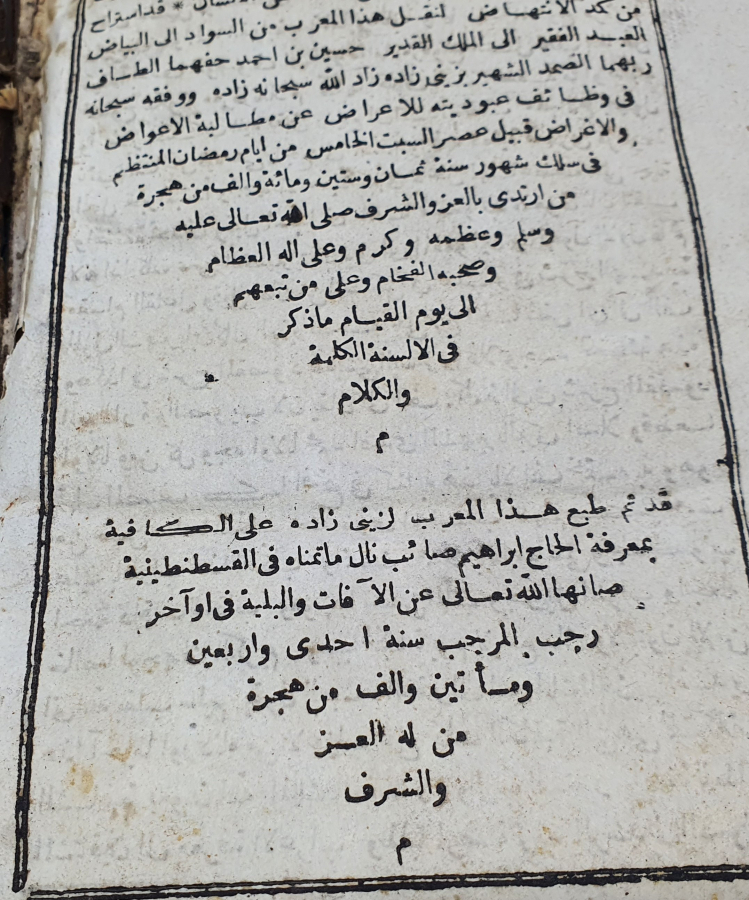 الانتسال * قد استراح
من كد الانتهاض لنقل هذا المعرب من السواد الى البياض
العبد الفقير الى الملك القدير حسين بن احمد حفهما الطاف
ربهما الصمد الشهير بزينى زاده زاد الله سبحانه زاده ووفقه سبحانه
فى وظائف عبوديته للاعراض عن مطالبة الاعواض
والاغراض قبيل عصر السبت الخامس من ايام رمضان المنتظم
فى سلك شهور سنة ثمان وستين ومائة والف من هجرة
من ارتدى بالعز والشرف صلى الله تعالى عليه
وسلم وعظمه وكرم وعلى اله العظام
وصحبه الفخام وعلى من تبعهم
الى يوم القيام ماذكر
فى الالسنة الكلمة
والكلام
م
قد تم طبع هذا المعرب لزينى زاده على الكافية
بمعرفة الحاج ابراهيم صائب نال ماتمناه فى القسطنطينية
صانها الله تعالى عن الآفات والبلية فى اوآخر
رجب المرجب سنة احدى واربعين
ومأتين والف من هجرة
من له العز
والشرف
م